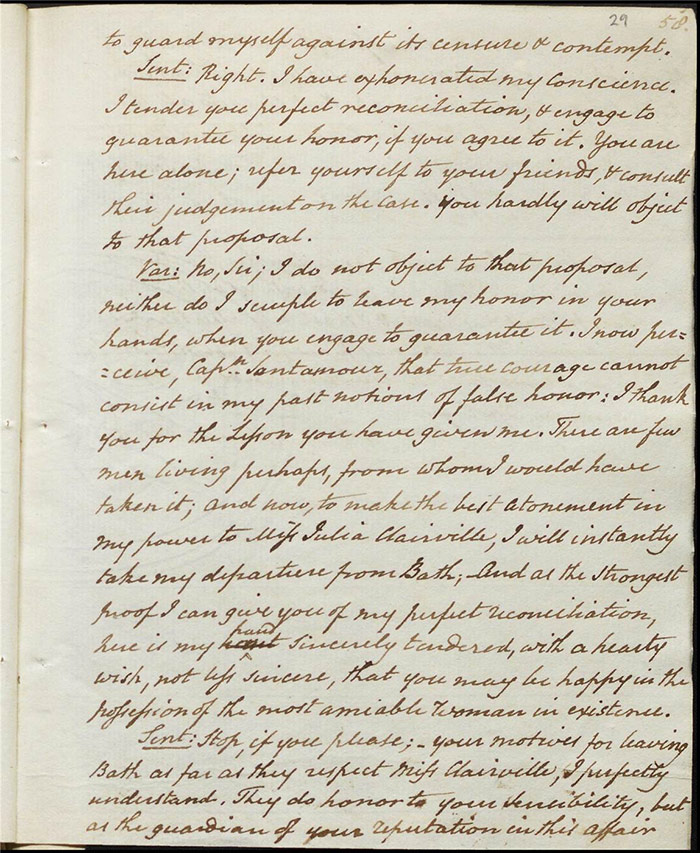 29 58.
to guard myself against its censure & contempt.
Sent: Right. I have exhonerated my Conscience.
I tender you perfect reconciliation, & engage to
guarantee your honor, if you agree to it. You are
here alone; refer yourself to your friends, & consult
their judgement on the case. You hardly will object
to that proposal.
Var: No, Sir; I do not object to that proposal,
neither do I scruple to leave my honor in your
hands, when you engage to guarantee it. I now per=
=ceive, Capt.n Santamour, that true courage cannot
consist in my past notions of false honor: I thank
you for the Lesson you have given me. There are few
men living perhaps, from whom I would have
taken it; and now, to make the best atonement in
my power to Miss Julia Clairville, I will instantly
take my departure from Bath; And as the strongest
proof I can give you of my perfect reconciliation,
here is my hand sincerely tendered, with a hearty
wish, not less sincere, that you may be happy in the
possession of the most amiable Woman in existence.
Sent: Stop, if you please; - your motives for leaving
Bath as far as they respect Miss Clairville, I perfectly
understand. They do honor to your sensibility, but
as the guardian of your reputation in this affair